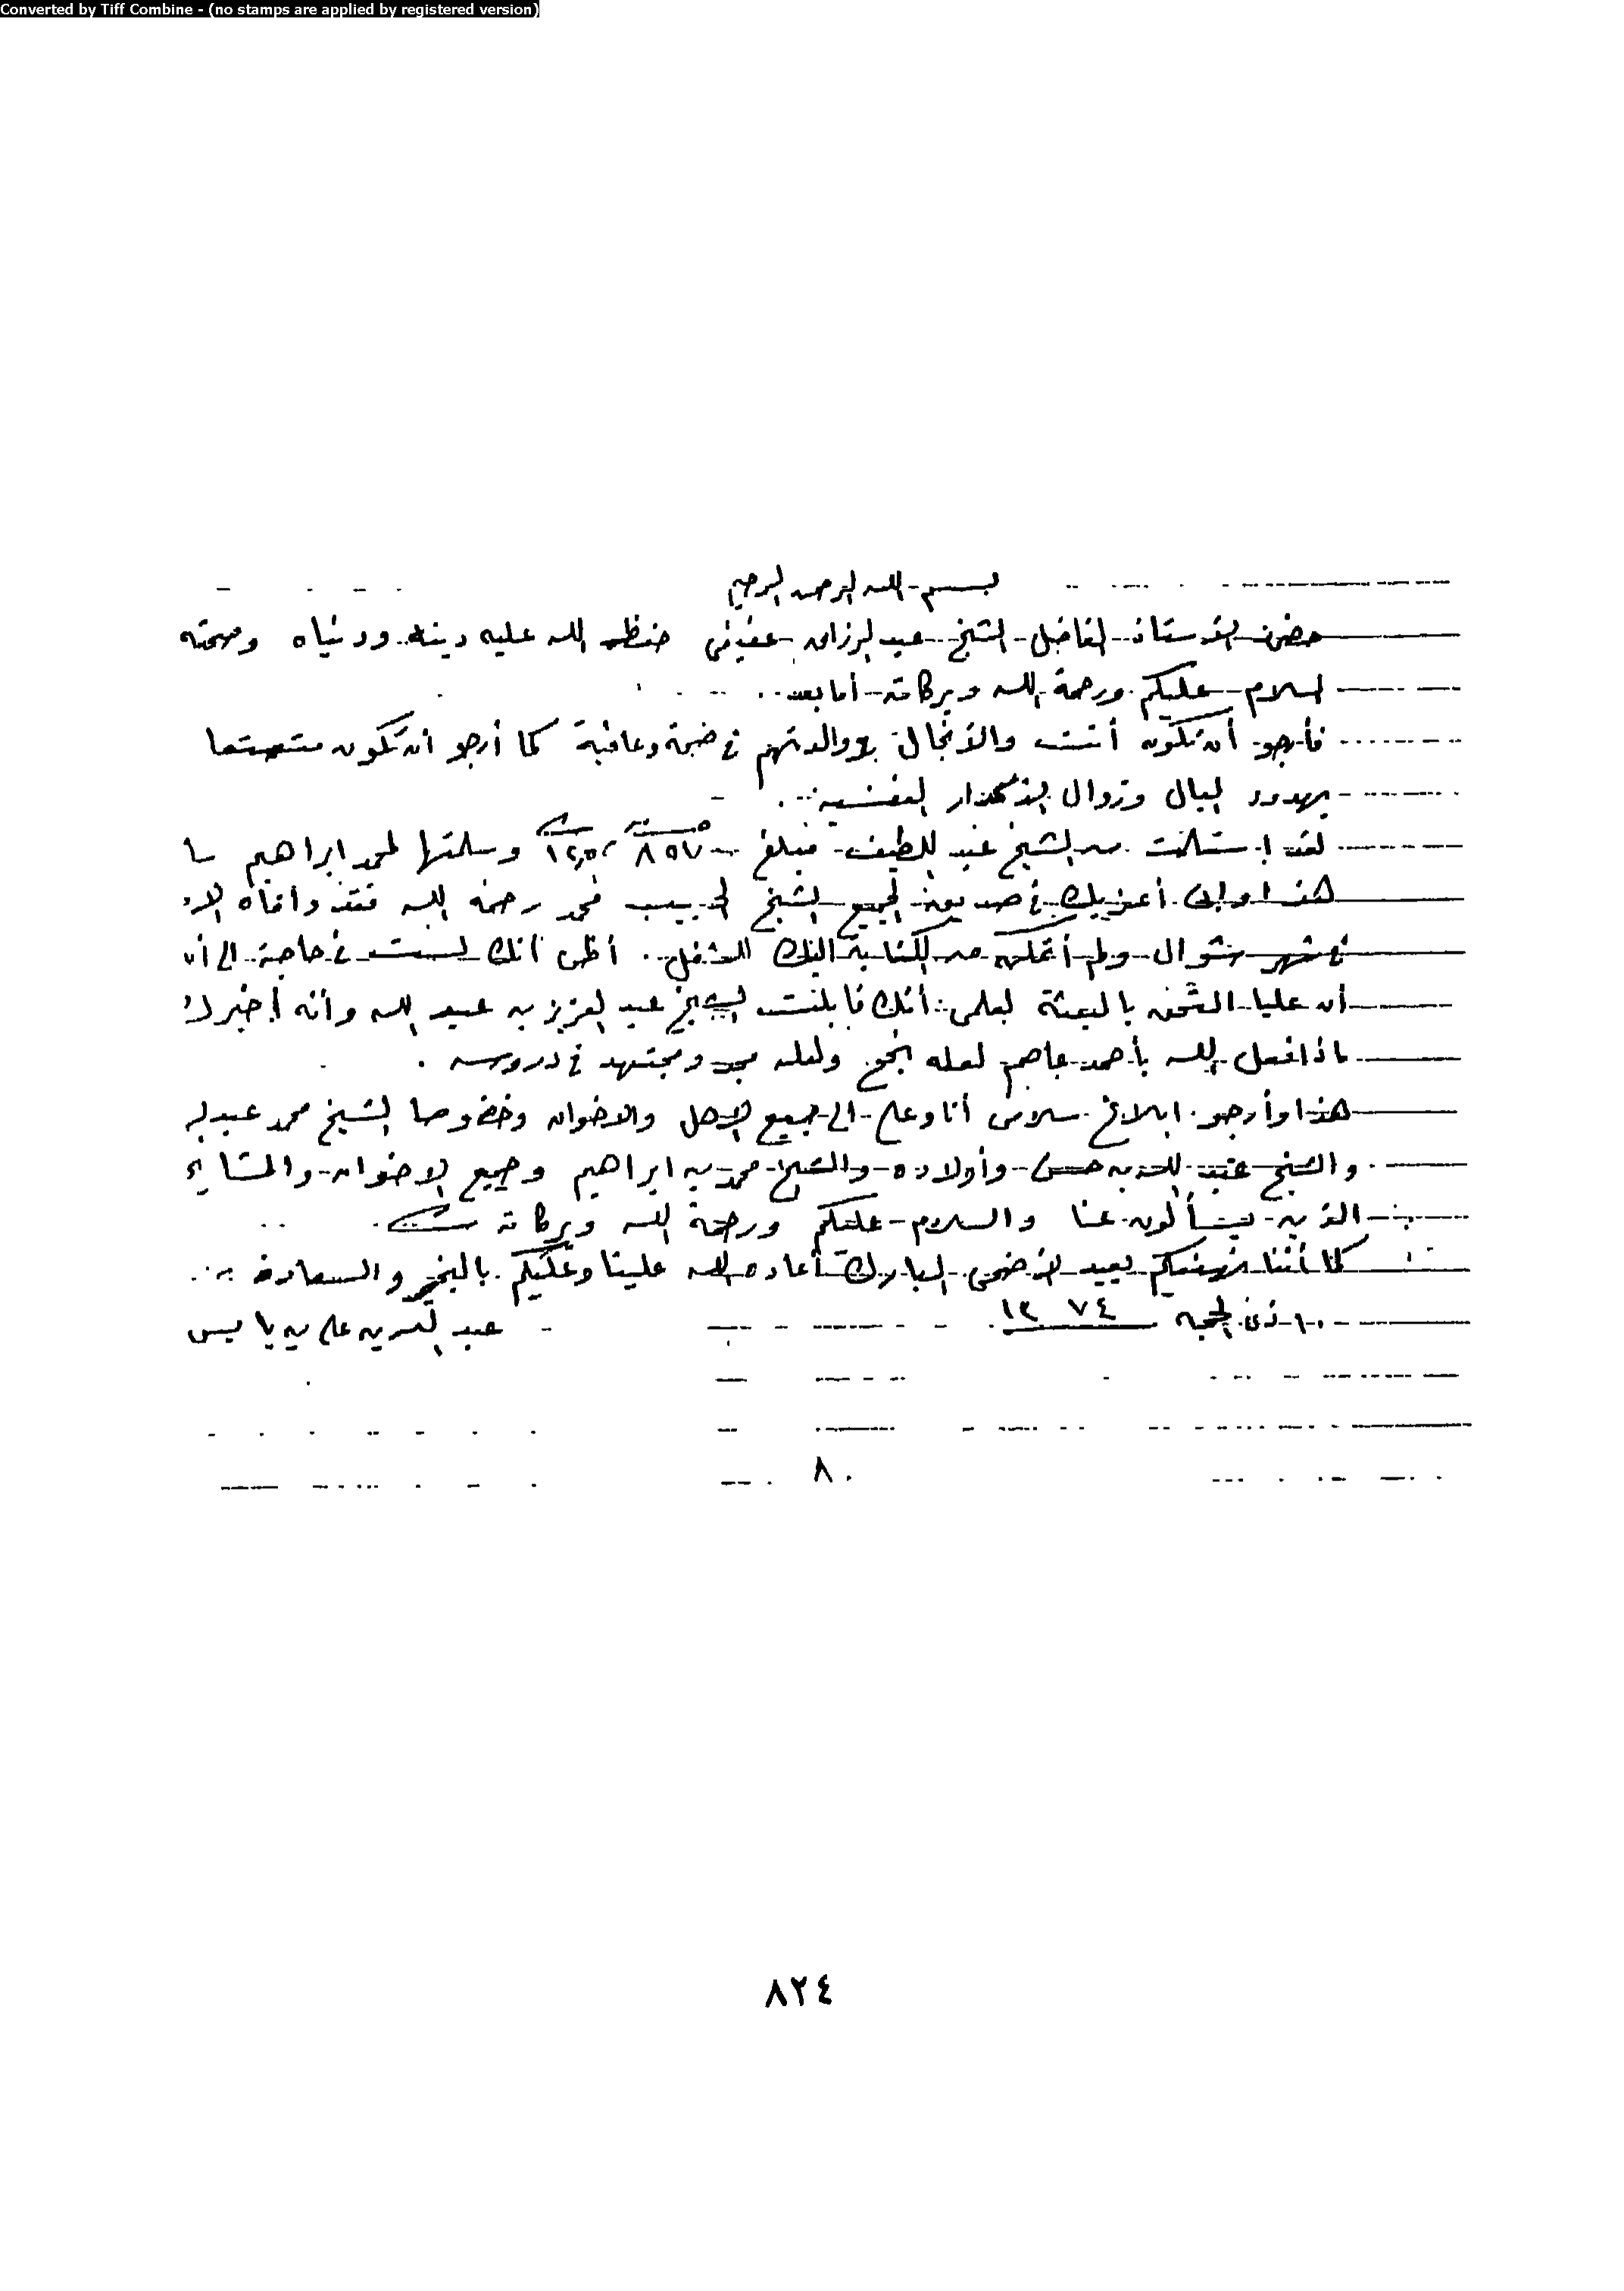 Converted by Tiff Combine - (no stamps are applied by registered version)
بسم الله الرحمن الرحيم
حضرة الأستاذ الفاضل الشيخ عبد الرزاق عفيفي حفظه الله عليه دينه ودنياه وصحته
السلام عليكم ورحمة الله وبركاته أما بعد
فأرجو أن تكون أنت والأنجال ووالدتهم في صحة وعافية كما أرجو أن تكون متمتعا
بهدوء البال وزوال الأكدار النفسية
لقد استلمت من الشيخ عبد اللطيف مبلغ ٨٥٧ وسلمتها لمحمد ابراهيم سا
هذا وإني أعزيك في صديق الجميع الشيخ الحبيب محمد رحمه الله فقد وافاه
في شهر شوال ولم أتمكن من الكتابة اليك للشغل. أظن أنك لست في حاجة الى أن
أن عليا التحق بالبعثة لعلمي أنك قابلت الشيخ عبد العزيز بن عبد الله وأنه أخبرك
ماذا فعل الله بأحمد عاصم لعله نجح ولعله مجد ومجتهد في دروسه .
هذا وأرجو ابلاغ سلامي أنا وعلي الى جميع الاهل والاخوان وخصوصا الشيخ محمد
والشيخ عبد الله بن حسن وأولاده والشيخ محمد بن ابراهيم وجميع الاخوان والمشايخ
الذين يسألون عنا والسلام عليكم ورحمة الله وبركاته
كما أننا نهنئكم بعيد الأضحى المبارك أعاده الله علينا وعليكم بالخير والسعادة
١٠ ذي الحجة ١٣٧٤
عبد علي بن يابس
٨٠
٨٢٤